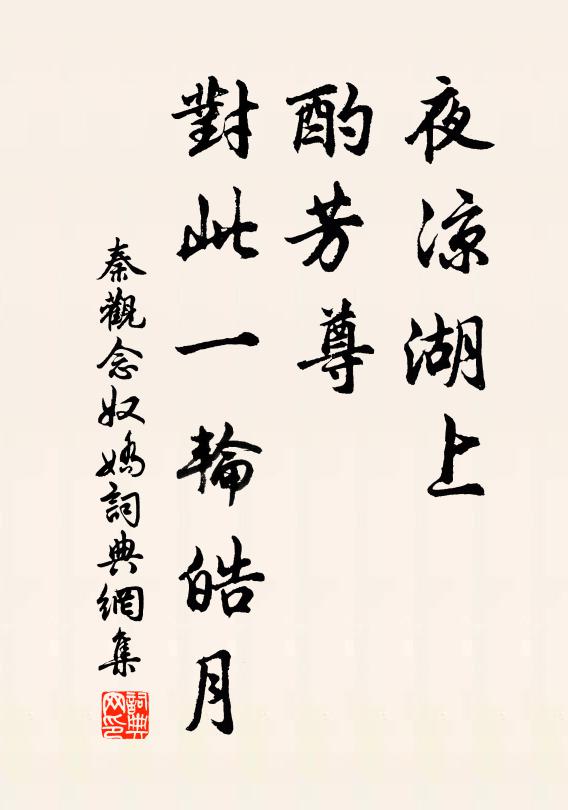 夜涼湖上
酌芳尊
對此一輪皓月
秦觀念奴嬌詞典網集
詞典網印